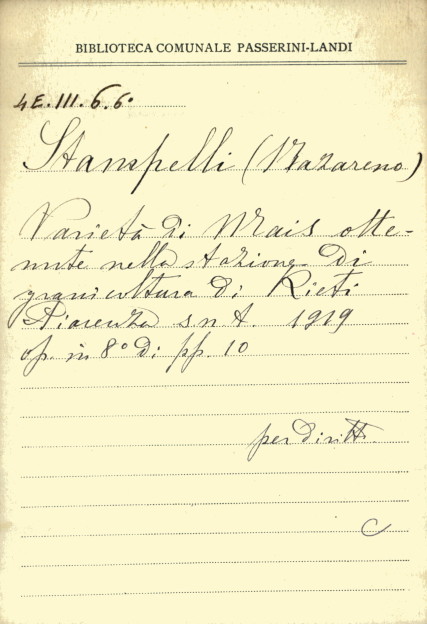 BIBLIOTECA COMUNALE PASSERINI-LANDI
4E.III.6.6º
Stampelli (Nazareno)
Varietà di Mais otte-
nute nella stazione di
granicoltura di Rieti
Piacenza s n t. 1919
op. in 8º di pp. 10
per diritti
C